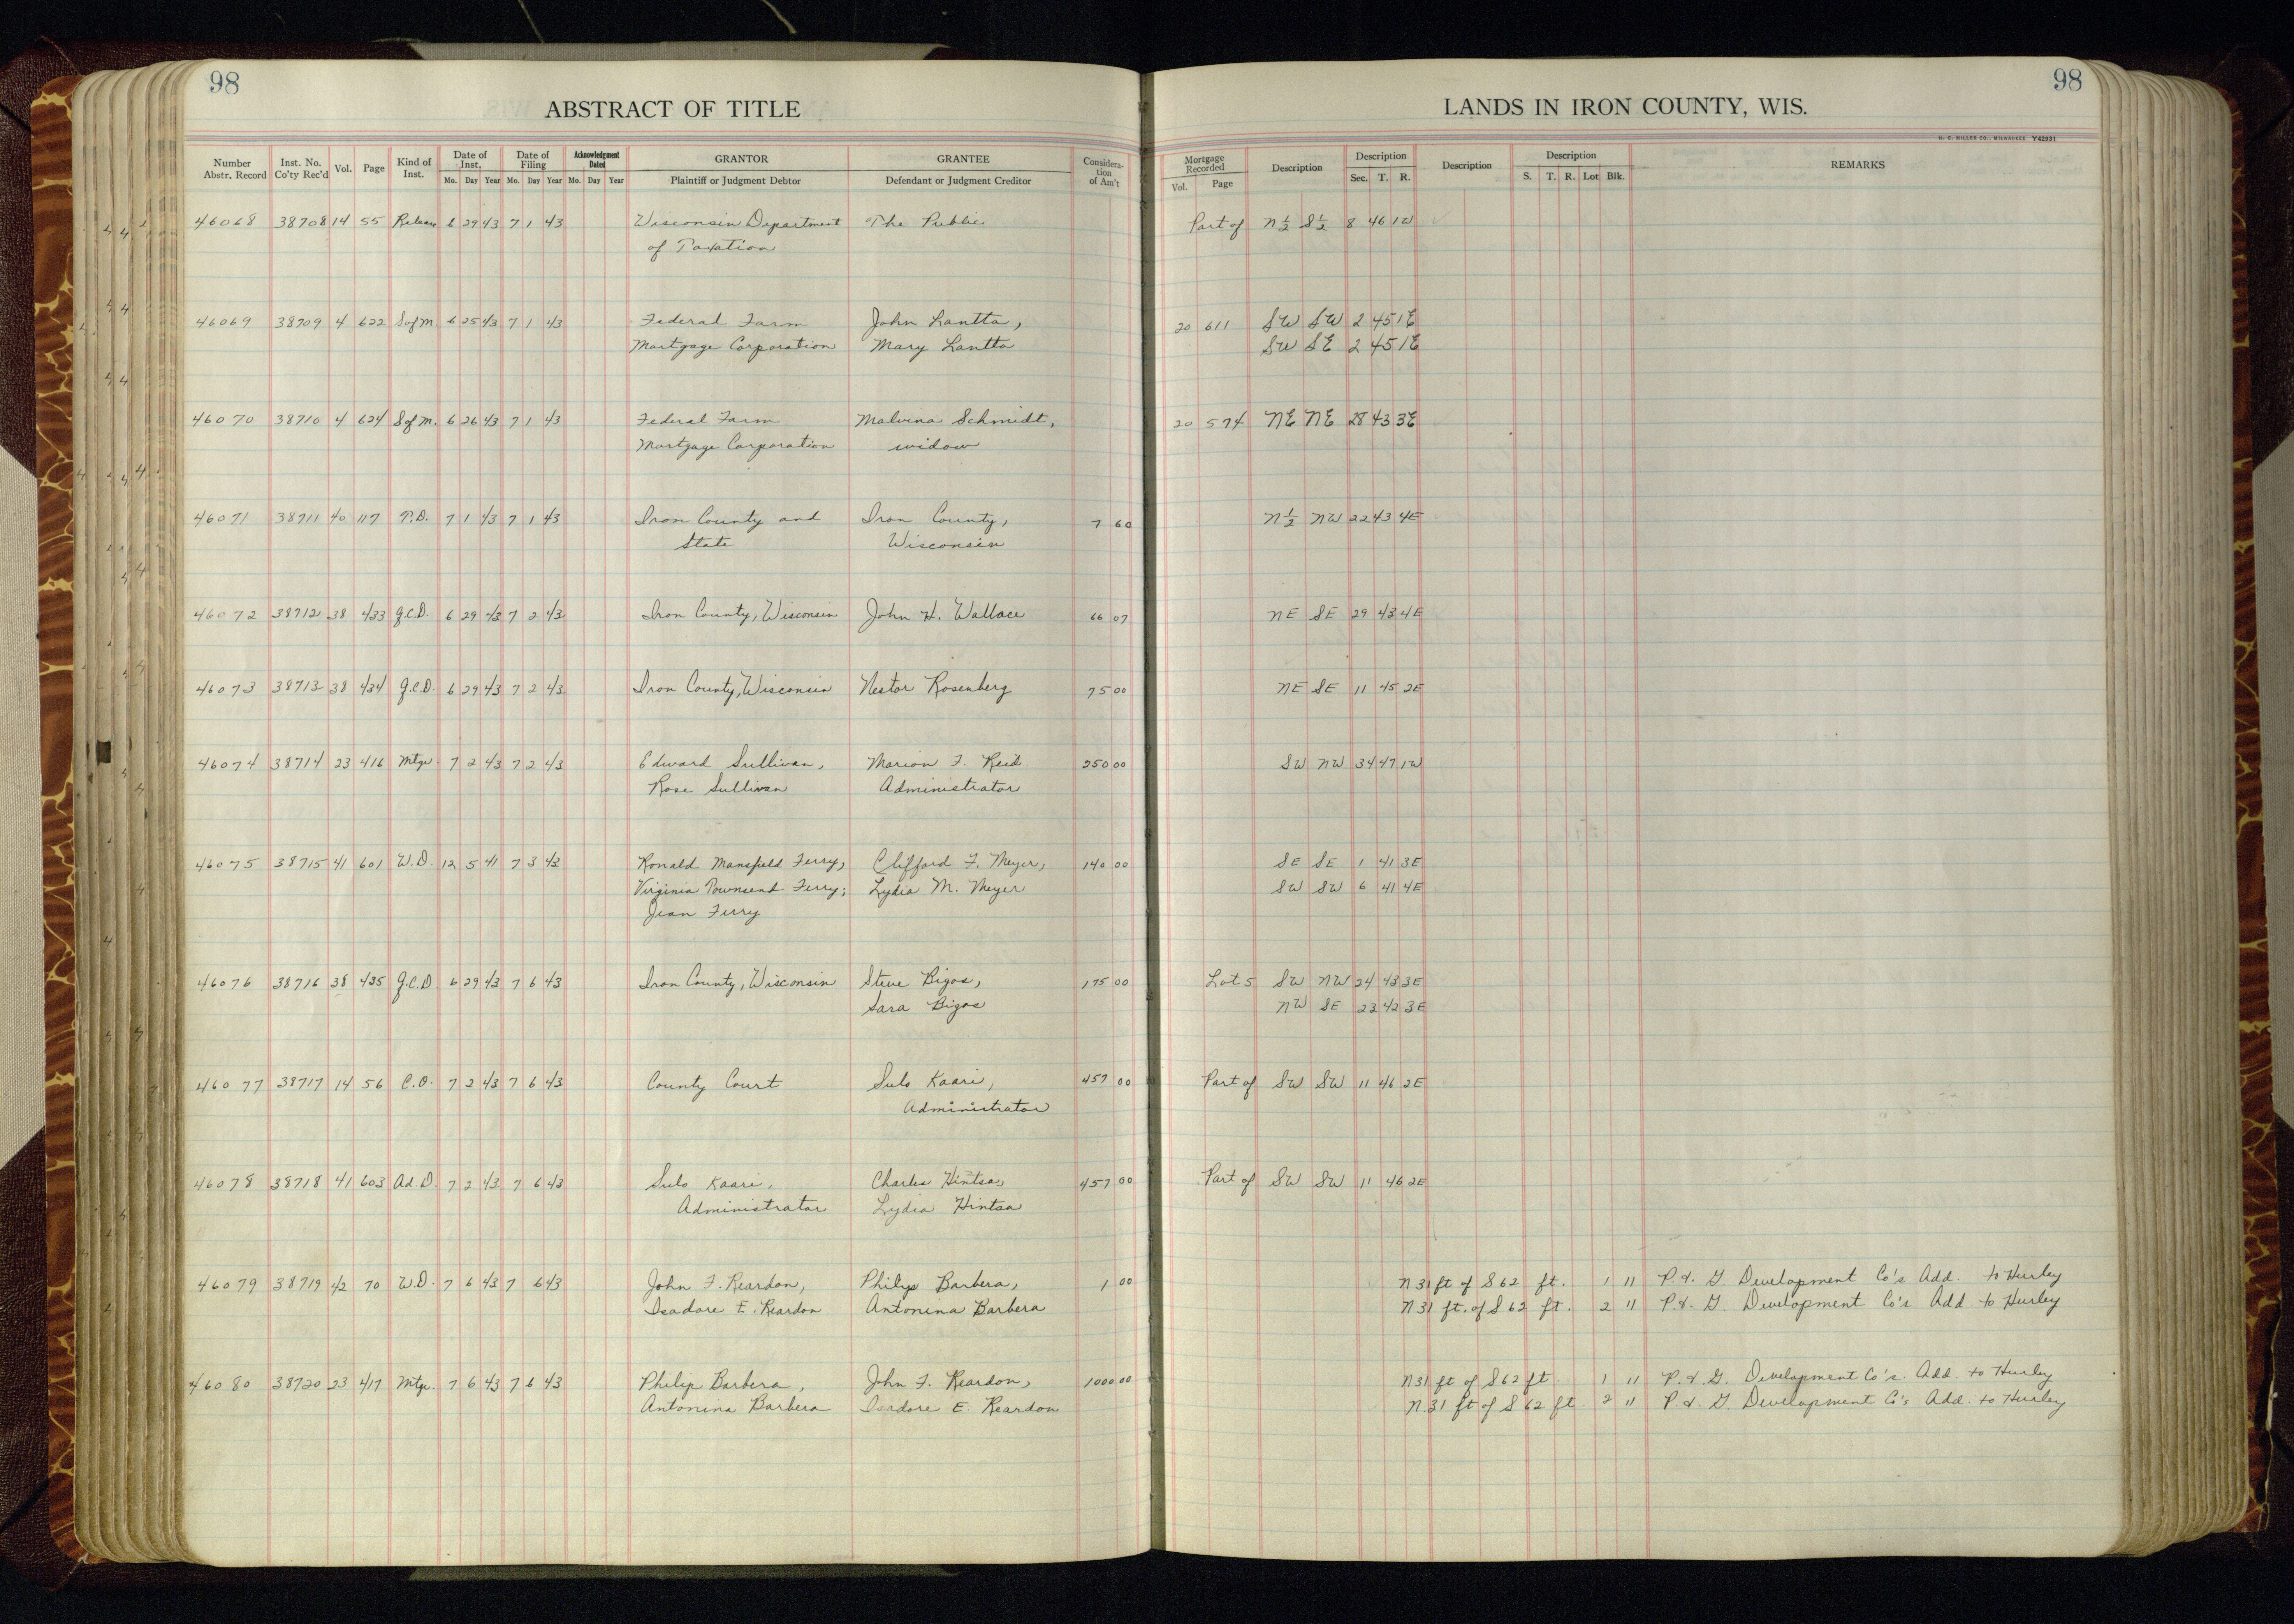 98 98
ABSTRACT OF TITLE LANDS IN IRON COUNTY, WIS.
H. C. MILLER CO., MILWAUKEE Y42931
Number Abstr. Record Inst. No. Co'ty Rec'd Vol. Page Kind of Inst. Date of Inst. Mo. Day Year Date of Filing Mo. Day Year Acknowledgment Dated Mo. Day Year GRANTOR Plaintiff or Judgment Debtor GRANTEE Defendant or Judgment Creditor Considera-tion of Am't Mortgage Recorded Vol. Page Description Description Sec. T. R. Description Description S. T. R. Lot Blk. REMARKS
46068 38708 14 55 Release 6 29 43 7 1 43 Wisconsin Department The Public Part of N½ S½ 8 46 1W
of Taxation
46069 38709 4 622 S of M. 6 25 43 7 1 43 Federal Farm John Lantta, 20 611 SW SW 2 45 1E
Mortgage Corporation Mary Lantta SW SE 2 45 1E
46070 38710 4 624 S of M. 6 26 43 7 1 43 Federal Farm Malvina Schmidt, 20 574 NE NE 28 43 3E
Mortgage Corporation widow
46071 38711 40 117 T.D. 7 1 43 7 1 43 Iron County and Iron County, 7 60 N½ NW 22 43 4E
State Wisconsin
46072 38712 38 433 Q.C.D. 6 29 43 7 2 43 Iron County, Wisconsin John H. Wallace 66 07 NE SE 29 43 4E
46073 38713 38 434 Q.C.D. 6 29 43 7 2 43 Iron County, Wisconsin Nestor Rosenberg 75 00 NE SE 11 45 2E
46074 38714 23 416 Mtge. 7 2 43 7 2 43 Edward Sullivan, Marion F. Reid 250 00 SW NW 34 47 1W
Rose Sullivan Administrator
46075 38715 41 601 W.D. 12 5 41 7 3 43 Ronald Mansfield Ferry, Clifford F. Meyer, 140 00 SE SE 1 41 3E
Virginia Townsend Ferry; Lydia M. Meyer SW SW 6 41 4E
Jean Ferry
46076 38716 38 435 Q.C.D 6 29 43 7 6 43 Iron County, Wisconsin Steve Bigos, 175 00 Lot 5 SW NW 24 43 3E
Sara Bigos NW SE 23 42 3E
46077 38717 14 56 C.O. 7 2 43 7 6 43 County Court Sulo Kaari, 457 00 Part of SW SW 11 46 2E
Administrator
46078 38718 41 603 Ad.D. 7 2 43 7 6 43 Sulo Kaari, Charles Hintsa, 457 00 Part of SW SW 11 46 2E
Administrator Lydia Hintsa
46079 38719 42 70 W.D. 7 6 43 7 6 43 John F. Reardon, Philip Barbera, 1 00 N 31 ft of S 62 ft. 1 11 P. & G. Development Co's Add. to Hurley
Isadore E. Reardon Antonina Barbera N 31 ft. of S 62 ft. 2 11 P. & G. Development Co's Add to Hurley
46080 38720 23 417 Mtge. 7 6 43 7 6 43 Philip Barbera, John F. Reardon, 1000 00 N 31 ft of S 62 ft. 1 11 P. & G. Development Co's. Add. to Hurley
Antonina Barbera Isadore E. Reardon N. 31 ft of S 62 ft. 2 11 P. & G. Development Co's Add. to Hurley